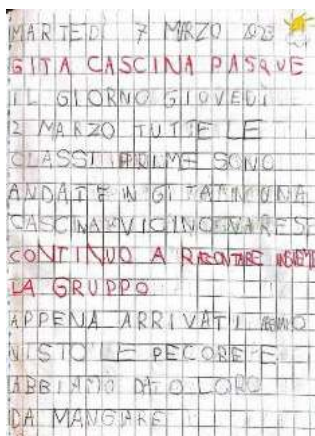 MARTEDÌ 7 MARZO 2023
GITA CASCINA PASQUÉ
IL GIORNO GIOVEDÌ
2 MARZO TUTTE LE
CLASSI PRIME SONO
ANDATE IN GITA IN UNA
CASCINA VICINO VARESE
CONTINUO A RACONTARE INSIEME
LA GRUPPO
APPENA ARRIVATI ABBIAMO
VISTO LE PECORE E
ABBIAMO DATO LORO
DA MANGIARE